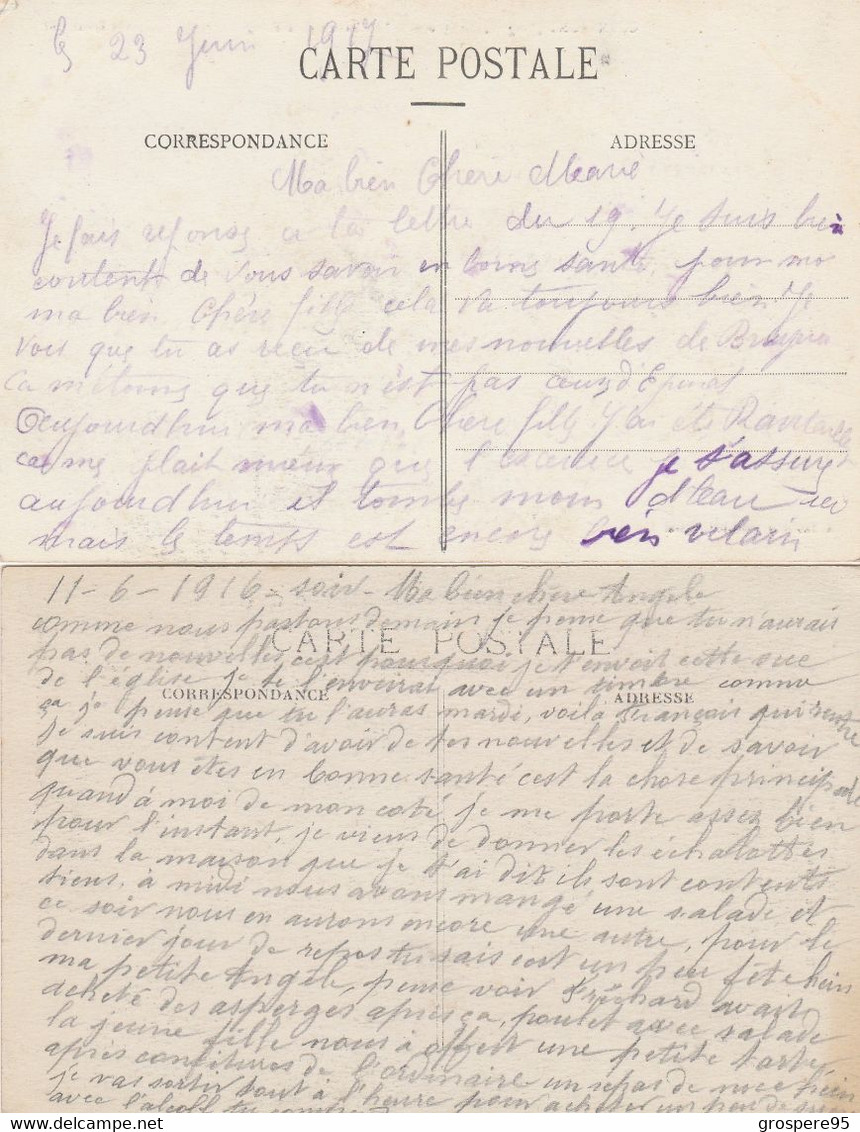 le 23 Juin 1917
CARTE POSTALE
CORRESPONDANCE
ADRESSE
Ma bien Chère
Je fais reponse a ta lettre du 19, Je suis bien
contents de vous savoir en bonne santé, pour moi
ma bien Chère fille cela va toujours bien Je
vois que tu as recu de mes nouvelles de
ca m'etonne que tu n'est pas
aujourd'hui ma bien Chère fille J'ai été
ca me plait mieux que je t'assure
aujourd'hui il tombe moin
mais le temps est encore bien vilain
11-6-1916 - soir - Ma bien chère Angele
comme nous partons demain je pense que tu n'aurais
CARTE POSTALE
pas de nouvelles c'est pourquoi je t'envoit cette vue
de l'église je te l'enverrai avec un timbre comme
CORRESPONDANCE
ADRESSE
ça je pense que tu l'auras mardi, voilà François qui rentre
je suis content d'avoir de tes nouvelles et de savoir
que vous êtes en bonne santé c'est la chose principale
quand à moi de mon coté je me porte assez bien
pour l'instant, je viens de donner les échalottes
dans la maison que je t'ai dit ils sont contents
tiens, à midi nous avons mangé une salade et
ce soir nous en aurons encore une autre, pour le
dernier jour de repos tu sais c'est un peu fête hein
ma petite Angele, pense voir avait
acheté des asperges après ça, poulet avec salade
la jeune fille nous à offert une petite tarte
après confitures de l'ordinaire un repas de noce hein
je vas sortir tout à l'heure pour acheter un peu de
avec l'alcool tu
grospere95